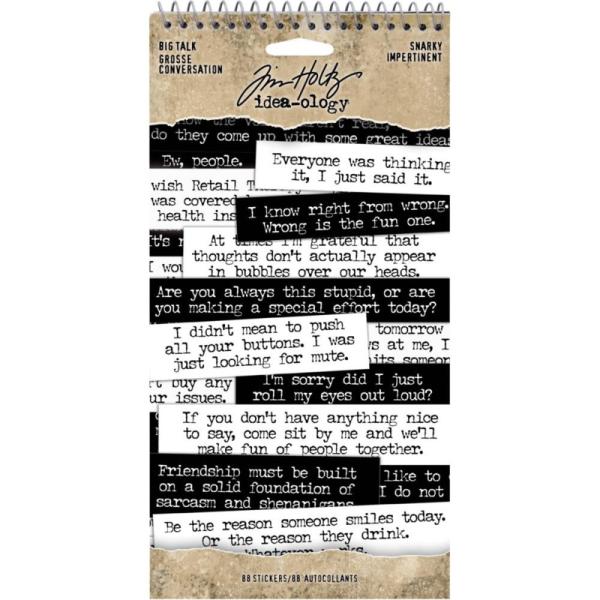 BIG TALK
GROSSE
CONVERSATION
SNARKY
IMPERTINENT
Tim Holtz
idea-ology
the voices aren't real,
do they come up with some great ideas
Ew, people.
Everyone was thinking
it, I just said it.
wish Retail
was covered
health ins
I know right from wrong.
Wrong is the fun one.
At times I'm grateful that
thoughts don't actually appear
in bubbles over our heads.
It's
I wou
Are you always this stupid, or are
you making a special effort today?
I didn't mean to push
all your buttons. I was
just looking for mute.
tomorrow
at me, I
someon
buy any
ur issues.
I'm sorry did I just
roll my eyes out loud?
If you don't have anything nice
to say, come sit by me and we'll
make fun of people together.
Friendship must be built
on a solid foundation of
sarcasm and shenanigans.
like to
I do not
Be the reason someone smiles today.
Or the reason they drink.
Whatever works.
88 STICKERS/88 AUTOCOLLANTS